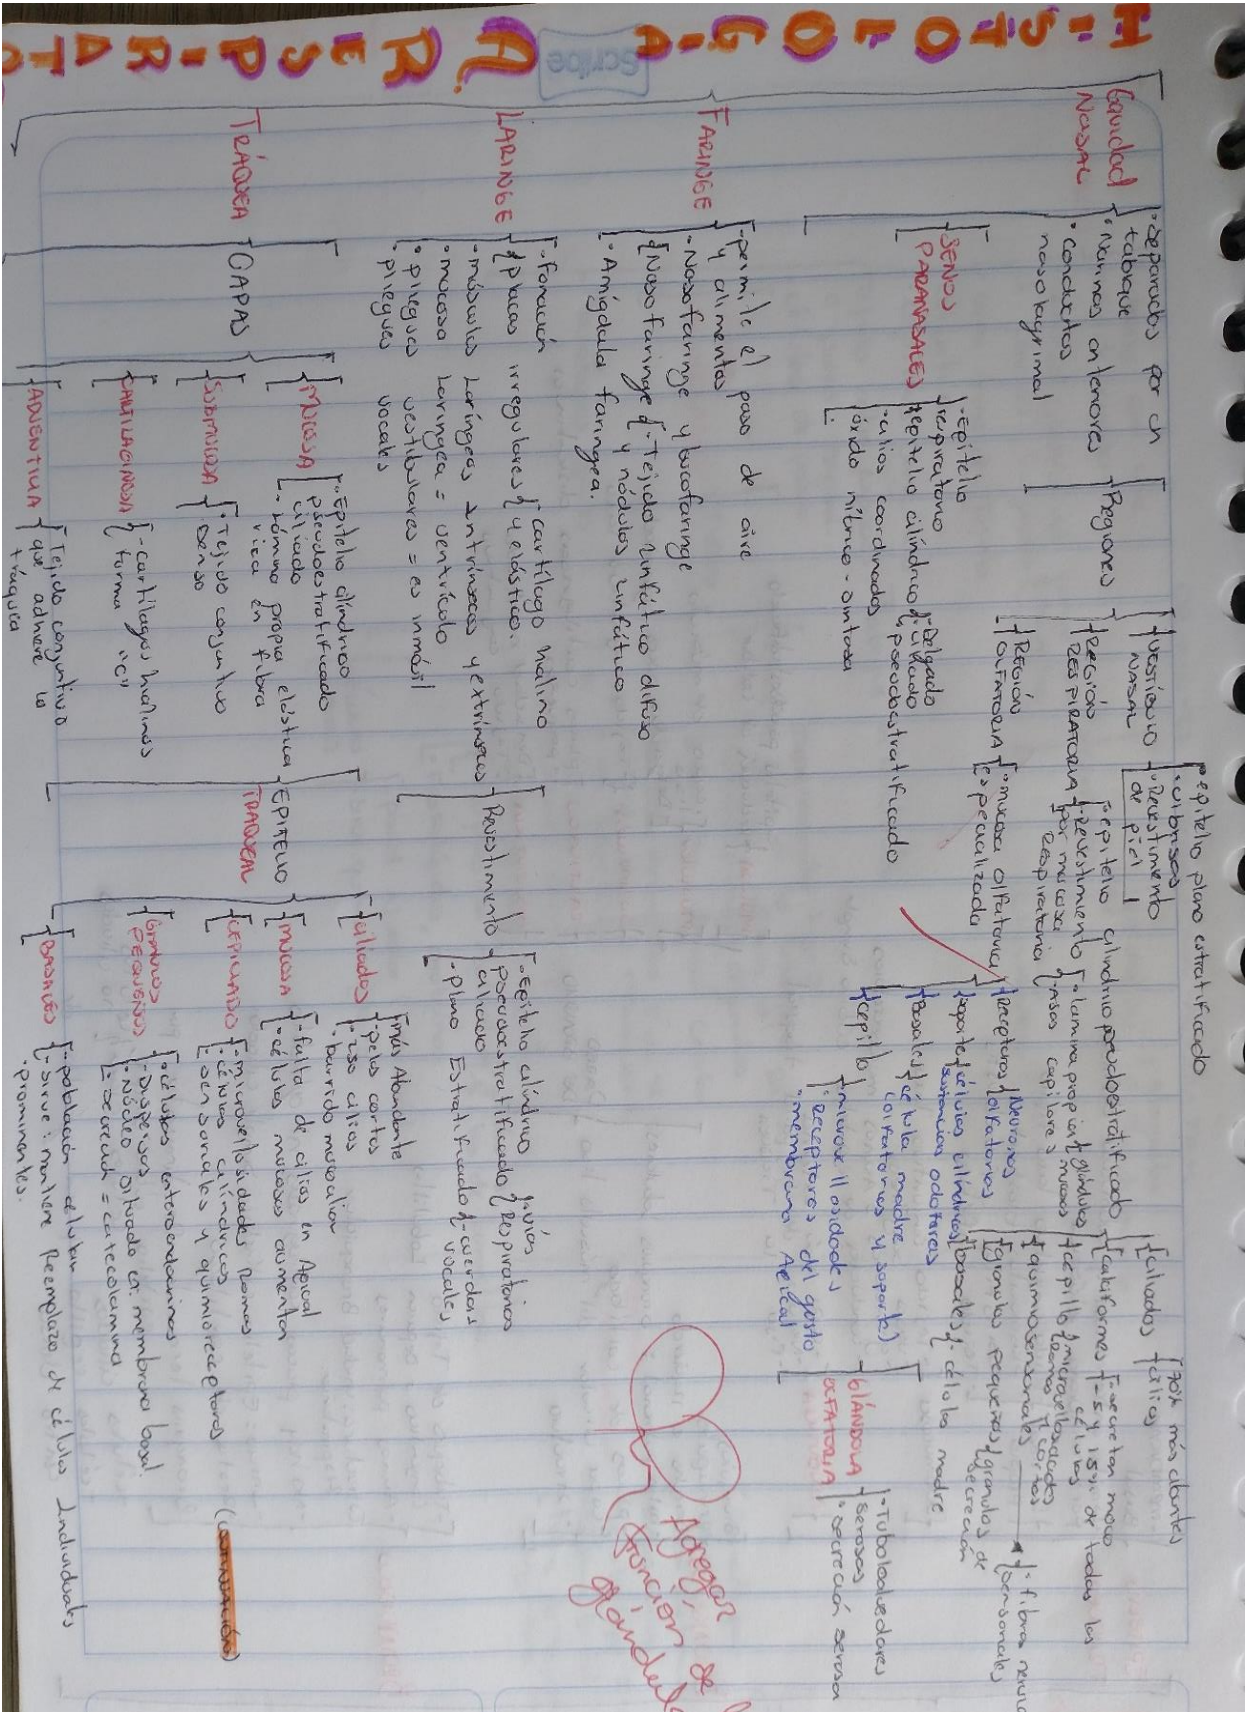 HISTOLOGIA A. RESPIRATO
Scribe
Cavidad
NASAL
• Separados por un
tabique
• Narinas anteriores
• conductos
nasolagrimal
Regiones
VESTÍBULO
NASAL
• epitelio plano estratificado
• vibrisas
• Revestimiento
de piel
REGIÓN
RESPIRATORIA
• epitelio cilindrico pseudoestratificado
- Revestimiento
por mucosa
Respiratoria
- lamina propia
glándulas
mucosas
- Asas capilares
ciliados
cilios
70% más abantes
Caliciformes
- secretan moco
- 5 y 15% de todas las
células
cepillo
microvellosidades
romos y cortos
quimiosensoriales
• fibras nervio
sensoriales
granulos pequeños
granulos de
secreción
basales
- célula madre
REGIÓN
OLFATORIA
• mucosa olfatoria
especializada
Receptoras
Neuronas
olfatorias
soporte
células cilíndricas
sustancias odotferas
Basales
célula madre
(olfatorias y soporte)
cepillo
microvellosidades
receptores del gusto
• membrana Apical
GLÁNDULA
OLFATORIA
• Tuboloalveolares
serosas
• secreción serosa
SENOS
PARANASALES
• Epitelio
respiratorio
• epitelio cilíndrico
- Delgado
- ciliado
pseudoestratificado
- cilios coordinados
óxido nítrico - sintasa
FARINGE
- permite el paso de aire
y alimentos
- Nasofaringe y bucofaringe
Nasofaringe
- Tejido linfático difuso
y nódulos linfático
• Amígdala faringea.
Agregar
función de
glándula
LARINGE
- Fonación
placas irregulares
- cartílago hialino
y elástico.
- músculos laríngeas intrínsecos y extrínsecos
• mucosa laringea = ventrículo
• pliegues vestibulares = es inmóvil
• pliegues vocales
Revestimiento
- Epitelio cilíndrico
pseudoestratificado
ciliado
• vías
Respiratorias
- plano Estratificado
- cuerdas
vocales
TRÁQUEA
CAPAS
MUCOSA
• Epitelio cilíndrico
pseudoestratificado
ciliado
- lámina propia elástica
rica en fibra
SUBMUCOSA
• Tejido conjuntivo
denso
CARTILAGINOSA
- cartilagos hialinos
forma "C"
ADVENTICIA
Tejido conjuntivo
que adhiere la
tráquea
EPITELIO
TRAQUEAL
ciliados
más Abundante
- pelos cortos
- uso cilios
• barrido mucociliar
MUCOSA
- falta de cilios en Apical
• células mucosas aumentan
CEPILLADO
- microvellosidades Romas
• células cilíndricas
- sensoriales y quimioreceptoras
Gránulos
PEQUEÑOS
• células enteroendocrinas
- Dispersos
• Núcleo situado en membrana basal
- secreción = catecolamina
BASALES
- población celular
- sirve: mantiene Reemplazo de célula individuales
prominentes.
(CONTINUACIÓN)